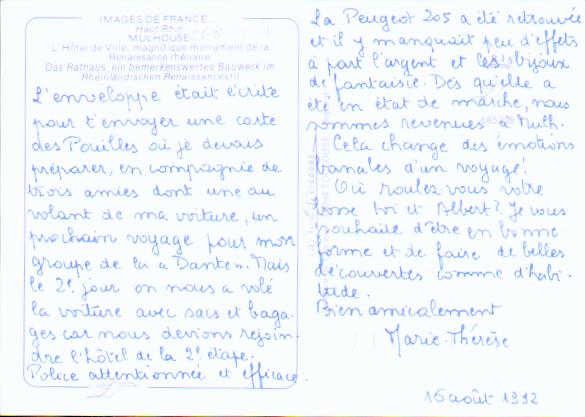 IMAGES DE FRANCE
Haut Rhin
MULHOUSE
L'Hôtel de Ville, magnifique monument de la
Renaissance rhénane
Das Rathaus, ein bemerkenswertes Bauwerk im
Rheinländischen Renaissancestil
L'enveloppe était écrite
pour t'envoyer une carte
des Pouilles où je devais
préparer, en compagnie de
trois amies dont une au
volant de ma voiture, un
prochain voyage pour mon
groupe de la "Dante". Mais
le 2e jour on nous a volé
la voiture avec sacs et baga-
ges car nous devions rejoin-
dre l'hôtel de la 2e étape.
Police attentionnée et efficace.
La Peugeot 205 a été retrouvée
et il y manquait peu d'effets
à part l'argent et les bijoux
de fantaisie. Dès qu'elle a
été en état de marche, nous
sommes revenues à Mulh.
Cela change des émotions
banales d'un voyage!
Où roulez-vous votre
bosse toi et Albert? Je vous
souhaite d'être en bonne
forme et de faire de belles
découvertes comme d'habi-
tude.
Bien amicalement
Marie-Thérèse
16 août 1992